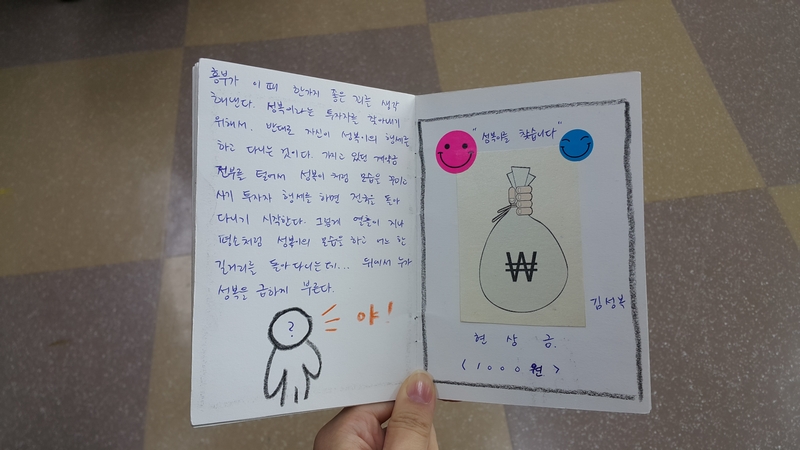 흥부가 이 때 한가지 좋은 꾀를 생각
해낸다. 성복이라는 투자자를 잡아내기
위해서, 반대로 자신이 성복이의 행세를
하고 다니는 것이다. 가지고 있던 계약금
전부를 털어서 성복이처럼 모습을 꾸미고
사기 투자자 행세를 하면 전국을 돌아
다니기 시작한다. 그렇게 열흘이 지나
평소처럼 성복이의 모습을 하고 어느 한
길거리를 돌아다니는데... 뒤에서 누가
성복을 급하게 부른다.
?
야!
"성복이를 찾습니다"
₩
김성복
현상금.
<1000원>